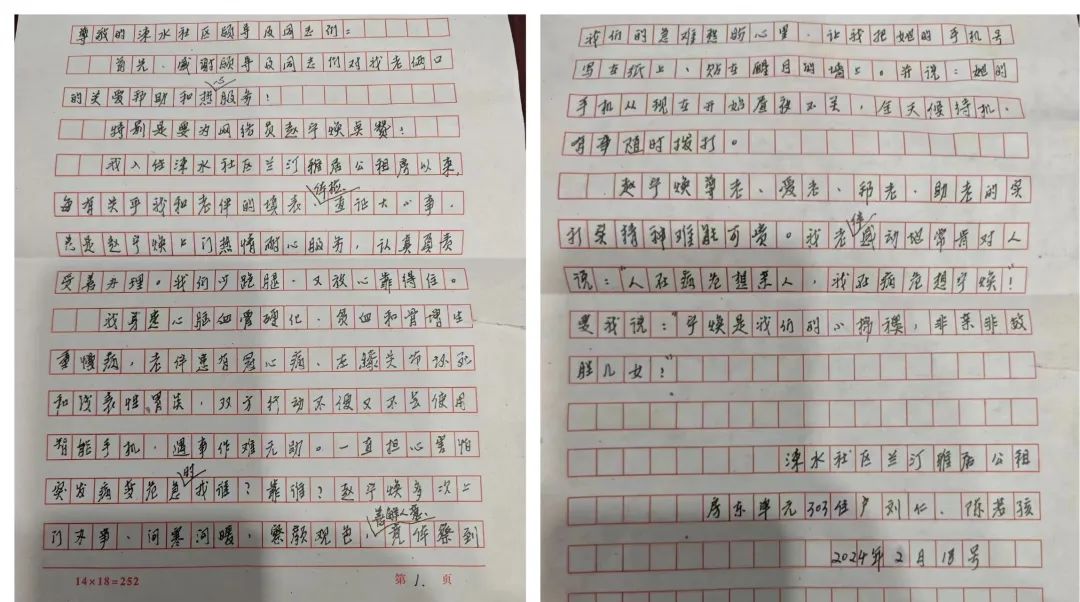 尊敬的涑水社区领导及同志们：
首先，感谢领导及同志们对我老俩口
的关爱帮助和热心服务！
特别是要为网络员赵宇焕点赞！
我入住涑水社区兰汀雅居公租房以来，
每有关乎我和老伴的填表、体检、查证大小事，
总是赵宇焕上门热情耐心服务，认真负责
妥善办理。我们少跑腿，又放心靠得住。
我身患心脑血管硬化、贫血和骨增生
重慢病，老伴患有冠心病、左髋关节坏死
和浅表性胃炎，双方行动不便又不会使用
智能手机，遇事作难无助。一直担心害怕
突发病变危急时找谁？靠谁？赵宇焕多次上
门办事、问寒问暖，察颜观色，善解人意，竟体察到
14×18=252
第1.页
我们的急难愁盼心里，让我把她的手机号
写在纸上，贴在醒目的墙上。并说：她的
手机从现在开始昼夜不关，全天候待机，
有事随时拨打。
赵宇焕尊老、爱老、帮老、助老的实
打实精神难能可贵。我老伴感动地常常对人
说："人在病危想亲人，我在病危想宇焕！"
要我说："宇焕是我们的小棉袄，非亲非故
胜儿女！"
涑水社区兰汀雅居公租
房东单元303住户刘仁、陈若孩
2024年2月18号